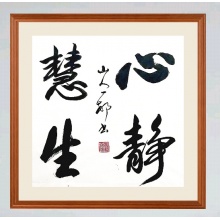 心静
慧生